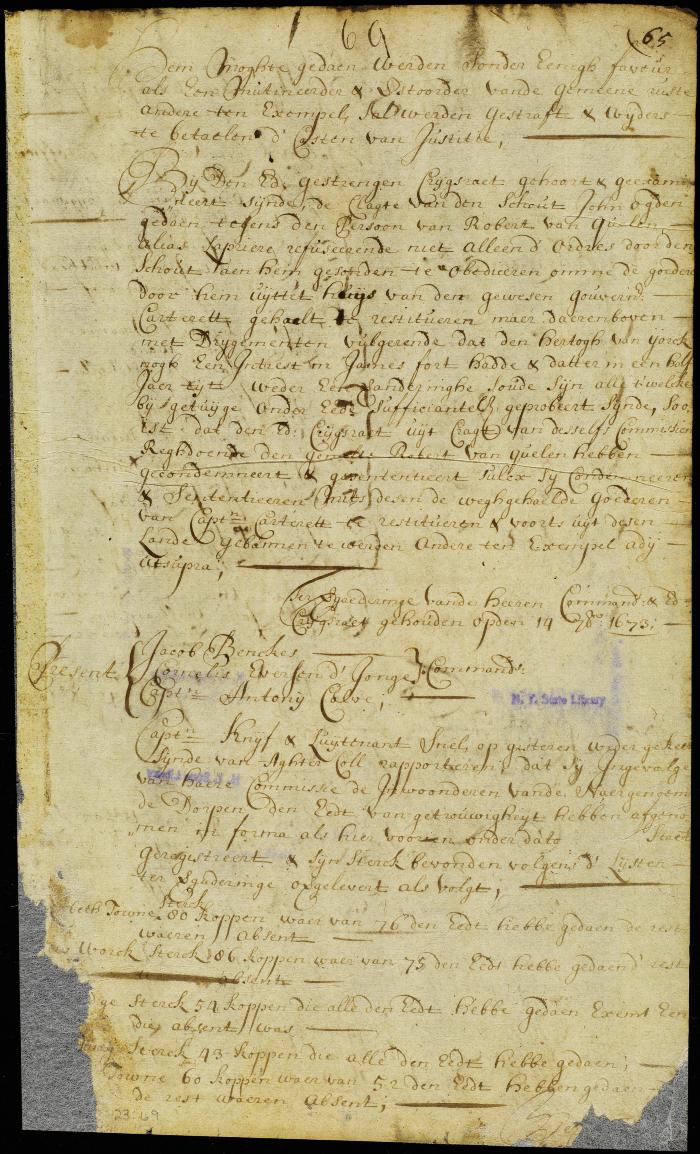 69
65
Dem Moghte gedaen werden sonder Eenigh faveur
als Een Mutineerder & Stoorder vande gemeene ruste
andere ten Exempel, sal werden gestraft & wyders
te betaelen d' Costen van Justitie;
By Den Ed. gestrengen Crygsraet gehoort & geexami
neert sijnde de Clagte van den Schout John ogden
gedaen tegens den Persoon van Robert van Quelen
alias Lapriere refuseerende niet alleen d' Ordres door den
Schout aen hem gesonden te obedieren omme de goedere
door hem uyttet huijs van den gewesen gouvern.
Carterett gehaelt te restitueren maer daerenboven
met Drygementen vulgerende dat den hertogh van yorck
nogh Een Intrest in James fort hadde & datter in een half
Jaer tyt weder Een veranderinghe soude sijn alle 'twelcke
by getuijge onder Eede sufficiantel: geprobeert sijnde, Soo
ist dat den Ed: Crygsraet uyt Cragt van desselfs Commissie
Reghdoende den gemelte Robert van Quelen hebben
gecondemneert & gesententieert sulcx sy Condemneeren
& Sententieeren mits desen de weghgehaelde goederen
van Captn. Carterett te restitueren & voorts uyt desen
Lande gebannen te werden andere ten Exempel ady
utsupra;
Ter Vgaederinge vande Heeren Command: & Ed.
Crygsraet gehouden opden 14 7br 1673;
Present
Jacob Benckes
Cornelis Eversen d' Jonge } Command:
Captn. Antony Colve;
N. Y. State Library
Captn. Knyf & Luytenant Snel, op gisteren weder gekeert
sijnde van Aghter Coll rapporteren, dat sy Ingevolge
van haere Commissie de Inwoonderen vande Naergenoem
de Dorpen den Eedt van getrouwigheyt hebben afgeno
men in forma als hier vooren onder dato staet
geregistreert & sijn sterck bevonden volgens d' Lijsten
ter Vgaderinge overgelevert als volgt;
beth Towne Sterck 80 koppen waer van 76 den Eedt hebbe gedaen de rest
waeren absent
Worck Sterck 86 koppen waer van 75 den Eedt hebbe gedaen d' rest
absent
dge Sterck 54 koppen die alle den Eedt hebbe gedaen Exemt Een
die absent was
Sterck 43 koppen die alle den Eedt hebbe gedaen;
Towne 60 koppen waer van 52 den Eedt hebben gedaen
de rest waeren absent;
23:69